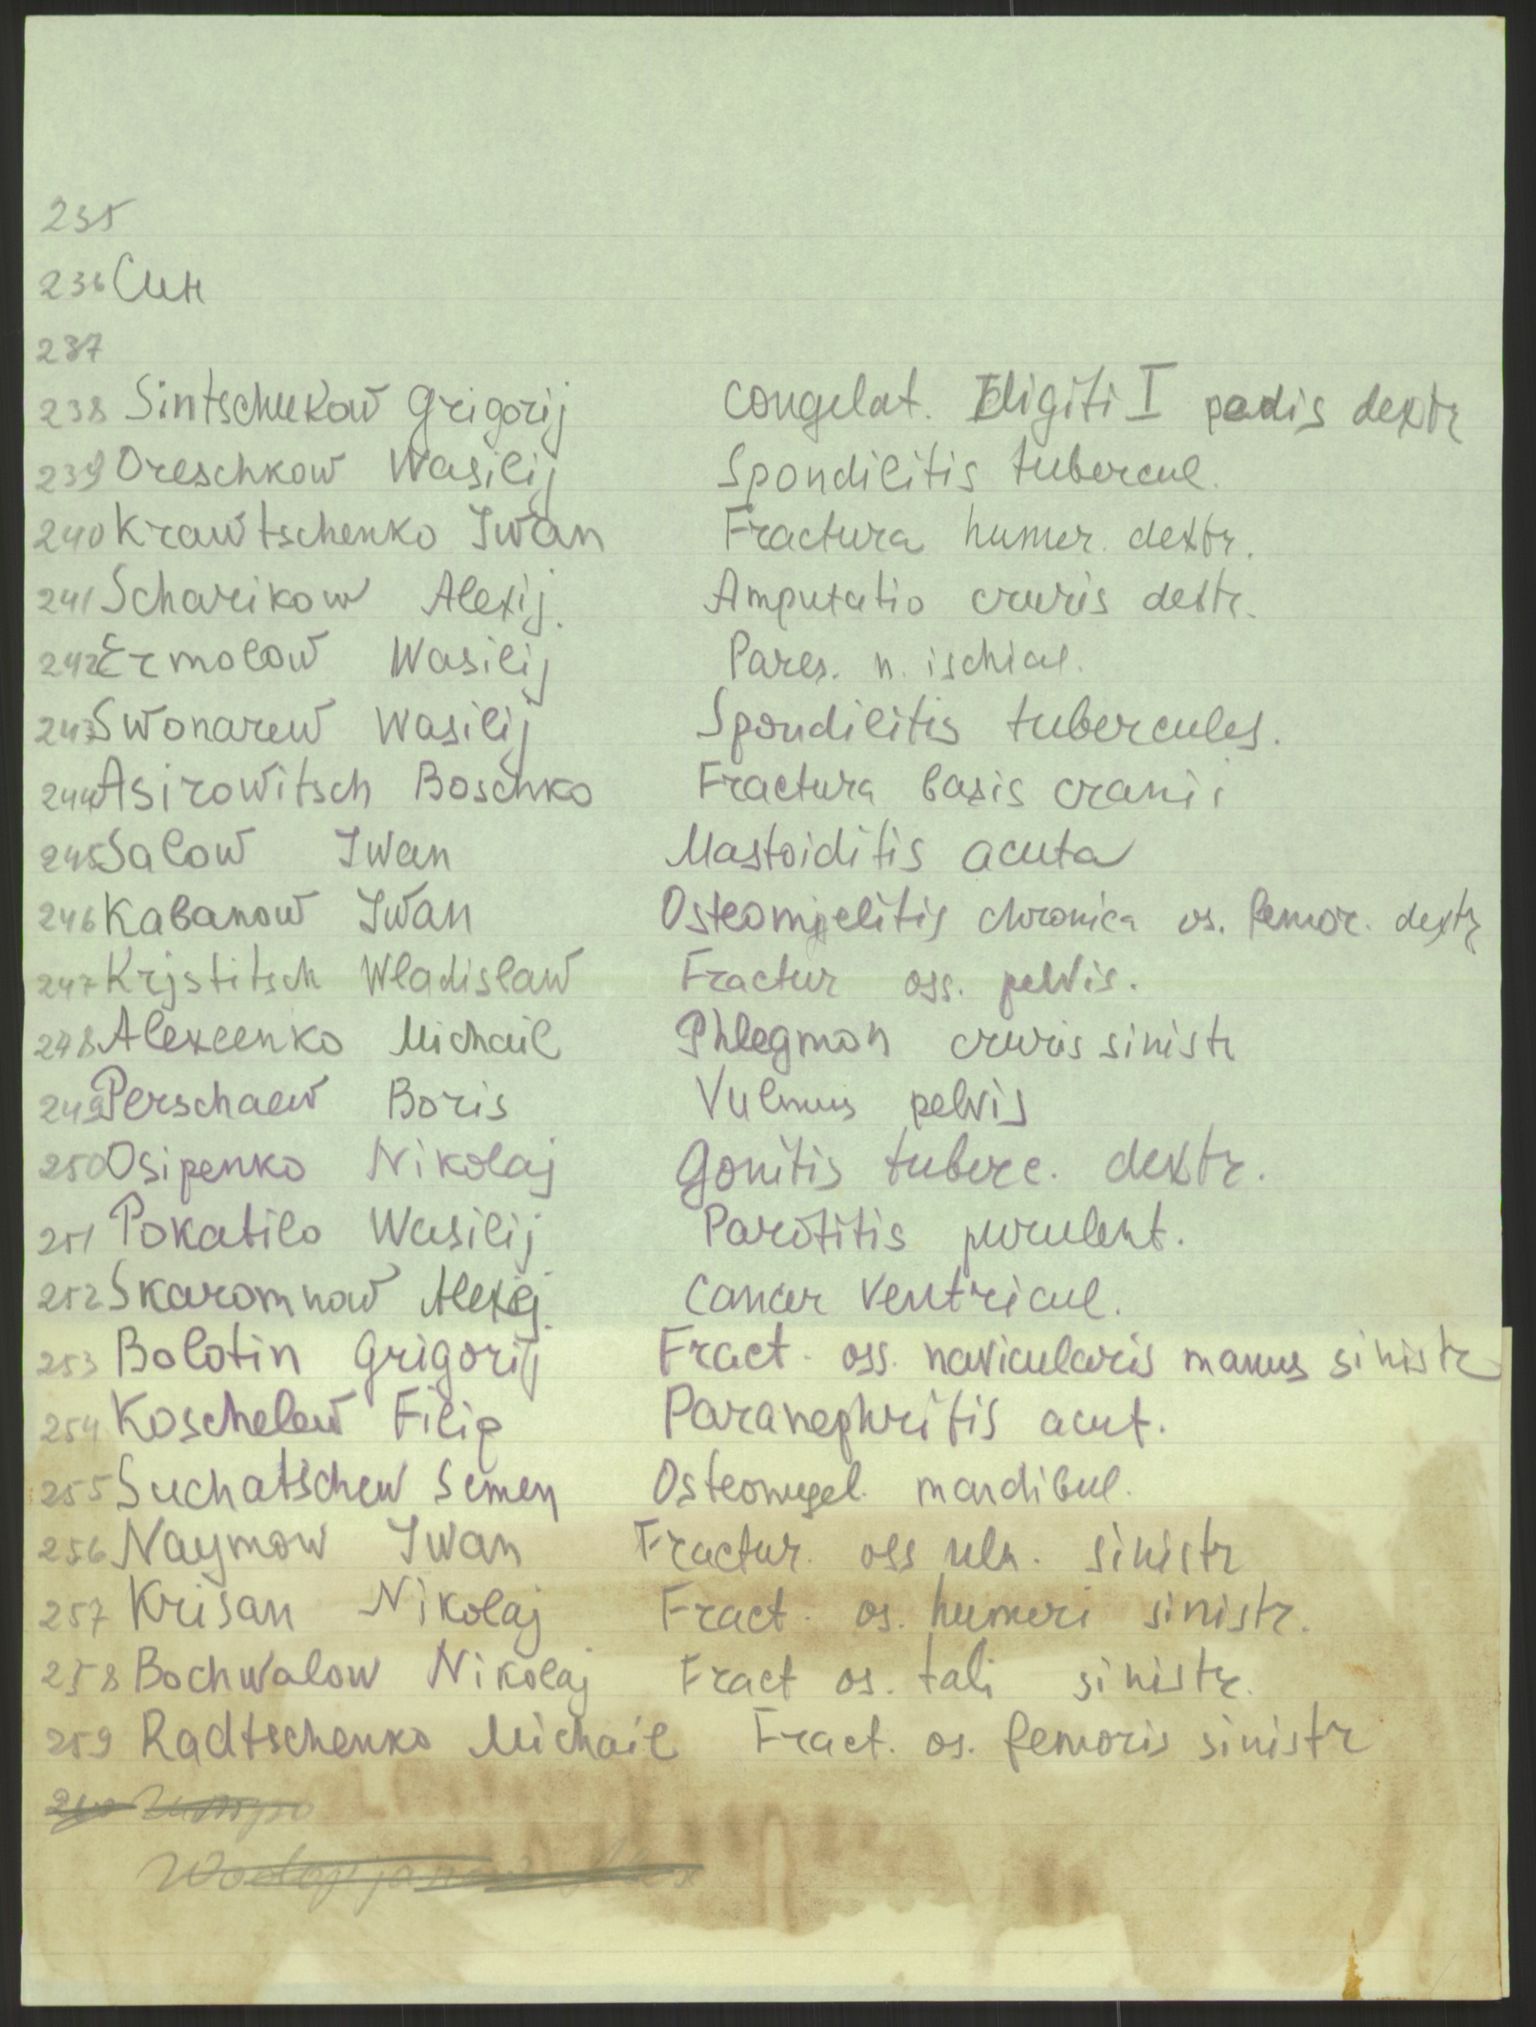 235
236 Син
237
238 Sintschukow Grigorij congelat. digiti I pedis dextr
239 Oreschkow Wasilij Spondilitis tubercul.
240 Krawtschenko Iwan Fractura humer. dextr.
241 Scharikow Alexij. Amputatio cruris dextr.
242 Ermolow Wasilij Pares. n. ischial.
243 Swonarew Wasilij Spondilitis tubercules.
244 Asirowitsch Boschko Fractura basis cranii
245 Salow Iwan Mastoiditis acuta
246 Kabanow Iwan Osteomjelitis chronica os. femor. dextr
247 Krjstitsch Wladislaw Fractur oss. pelvis.
248 Alexeenko Michail Phlegmon cruris sinistr
249 Perschaew Boris Vulnus pelvis
250 Osipenko Nikolaj Gonitis tuberc. dextr.
251 Pokatilo Wasilij Parotitis purulent.
252 Skaromnow Alexej. Cancer ventricul.
253 Bolotin Grigorij Fract. oss. navicularis manus sinistr
254 Koschelew Filip Paranephritis acut.
255 Suchatschew Semen Osteomyel. mandibul.
256 Naymow Iwan Fractur. oss uln. sinistr
257 Krisan Nikolaj Fract. os. humeri sinistr.
258 Bochwalow Nikolaj Fract os. tali sinistr.
259 Radtschenko Michail Fract. os. femoris sinistr